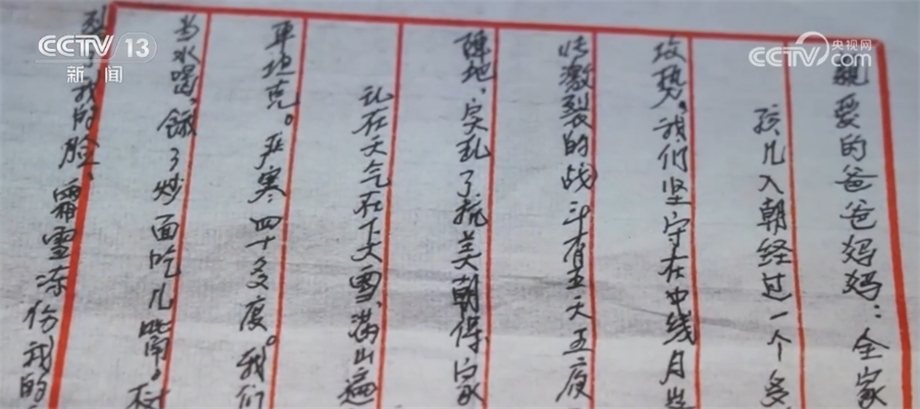 CCTV 13
新闻
CCTV 央视网
.com
親爱的爸爸妈妈：全家
孩儿入朝经过一个多
攻势。我们坚守在冲线月
激裂的战斗有五天五夜
阵地、实乱了抗美朝保家
乱在天气在下大雪、满山遍
车坦克。严寒四十多度。我们
当水喝、饿了炒面吃几 树
我的脸、霜雪冻份我的